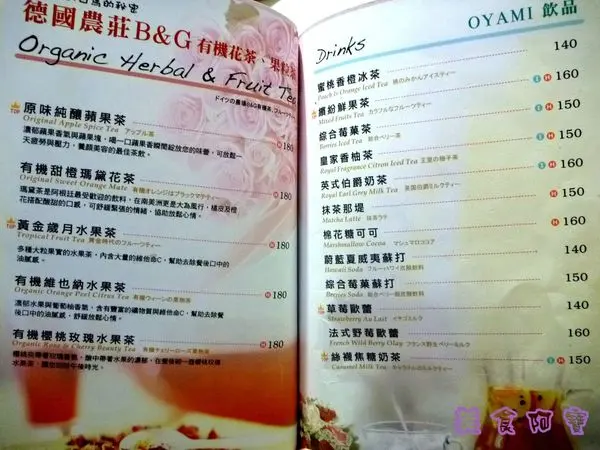 白馬的秘密
德國農莊B&G有機花茶、果粒茶
Organic Herbal & Fruit Tea
ドイツの農場B&G有機茶、フルーツティー
TOP 原味純釀蘋果茶
Original Apple Spice Tea アップル茶
H 180
濃郁蘋果香氣與蘋果塊，喝一口蘋果香瞬間綻放您的味蕾，可放鬆一
天疲勞與壓力，養顏美容的最佳茶飲。
有機甜橙瑪黛花茶
Original Sweet Orange Mate 有機オレンジはブラックマテティ
H 180
瑪黛茶是阿根廷最受歡迎的飲料，在南美洲更是大為風行，橘皮及橙
花搭配酸甜的口感，可紓緩緊張的情緒，協助放鬆心情。
TOP 黃金歲月水果茶
Tropical Fruit Tea 黄金時代のフルーツティー
H 180
多種大粒果實的水果茶，內含大量的維他命C，幫助去除餐後口中的
油膩感。
有機維也納水果茶
Organic Orange Peel Citrus Tea 有機ウィーンの果物茶
H 180
濃郁水果與葡萄柚香氣，含有豐富的礦物質與維他命C，幫助去除餐
後口中的油膩感，舒暖放鬆心情。
有機櫻桃玫瑰水果茶
Organic Rose & Cherry Beauty Tea 有機チェリーローズ果物茶
H 180
OYAMI 飲品
Drinks
蜜桃香橙冰茶
Peach & Orange Iced Tea 桃のみかんアイスティー
140
TOP 繽紛鮮果茶
Mixed Fruits Tea カラフルなフルーツティー
I H 160
綜合莓菓茶
Berries Iced Tea 総合ベリー茶
H 150
皇家香柚茶
Royal Fragrance Citron Iced Tea 王室の柚子茶
I H 150
英式伯爵奶茶
Royal Earl Grey Milk Tea 英国伯爵ミルクティー
I H 160
抹茶那堤
Matcha Latte 抹茶ラテ
I H 150
棉花糖可可
Marshmallow Cocoa マシュマロココア
H 160
蔚藍夏威夷蘇打
Hawaii Soda フルーハワイ炭酸飲料
140
綜合莓菓蘇打
Berries Soda 総合ベリー炭酸飲料
150
TOP 草莓歐蕾
Strawberry Au Lait イチゴミルク
140
法式野莓歐蕾
French Wild Berry Olay フランス野生ベリーミルク
160
TOP 絲襪焦糖奶茶
Caramel Milk Tea キャラメルのミルクティー
I H 150
美食阿寶